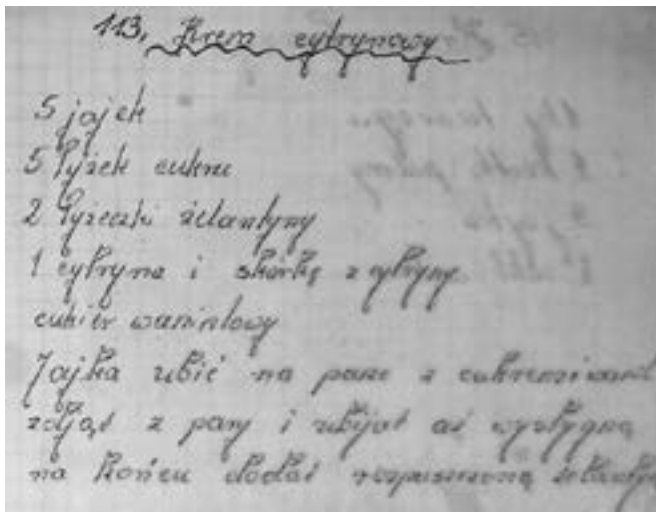 113. Krem cytrynowy
5 jajek
5 łyżek cukru
2 łyżeczki żelantyny
1 cytryna i skórkę z cytryny
cukier waniniowy
Jajka ubić na parze z cukrem i wanil
zdjąć z pary i ubijać aż wystygną
na końcu dodać rozpuszczoną żelantyn